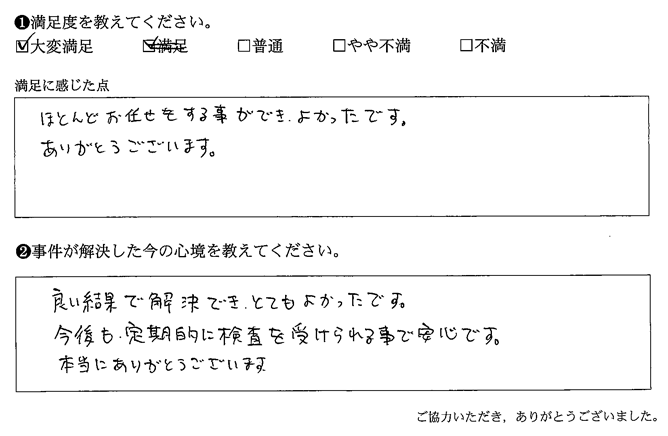 ❶満足度を教えてください。
☑大変満足 ☑満足 □普通 □やや不満 □不満
満足に感じた点
ほとんどお任せをする事ができ、よかったです。
ありがとうございます。
❷事件が解決した今の心境を教えてください。
良い結果で解決でき、とてもよかったです。
今後も、定期的に検査を受けられる事で安心です。
本当にありがとうございます
ご協力いただき，ありがとうございました。